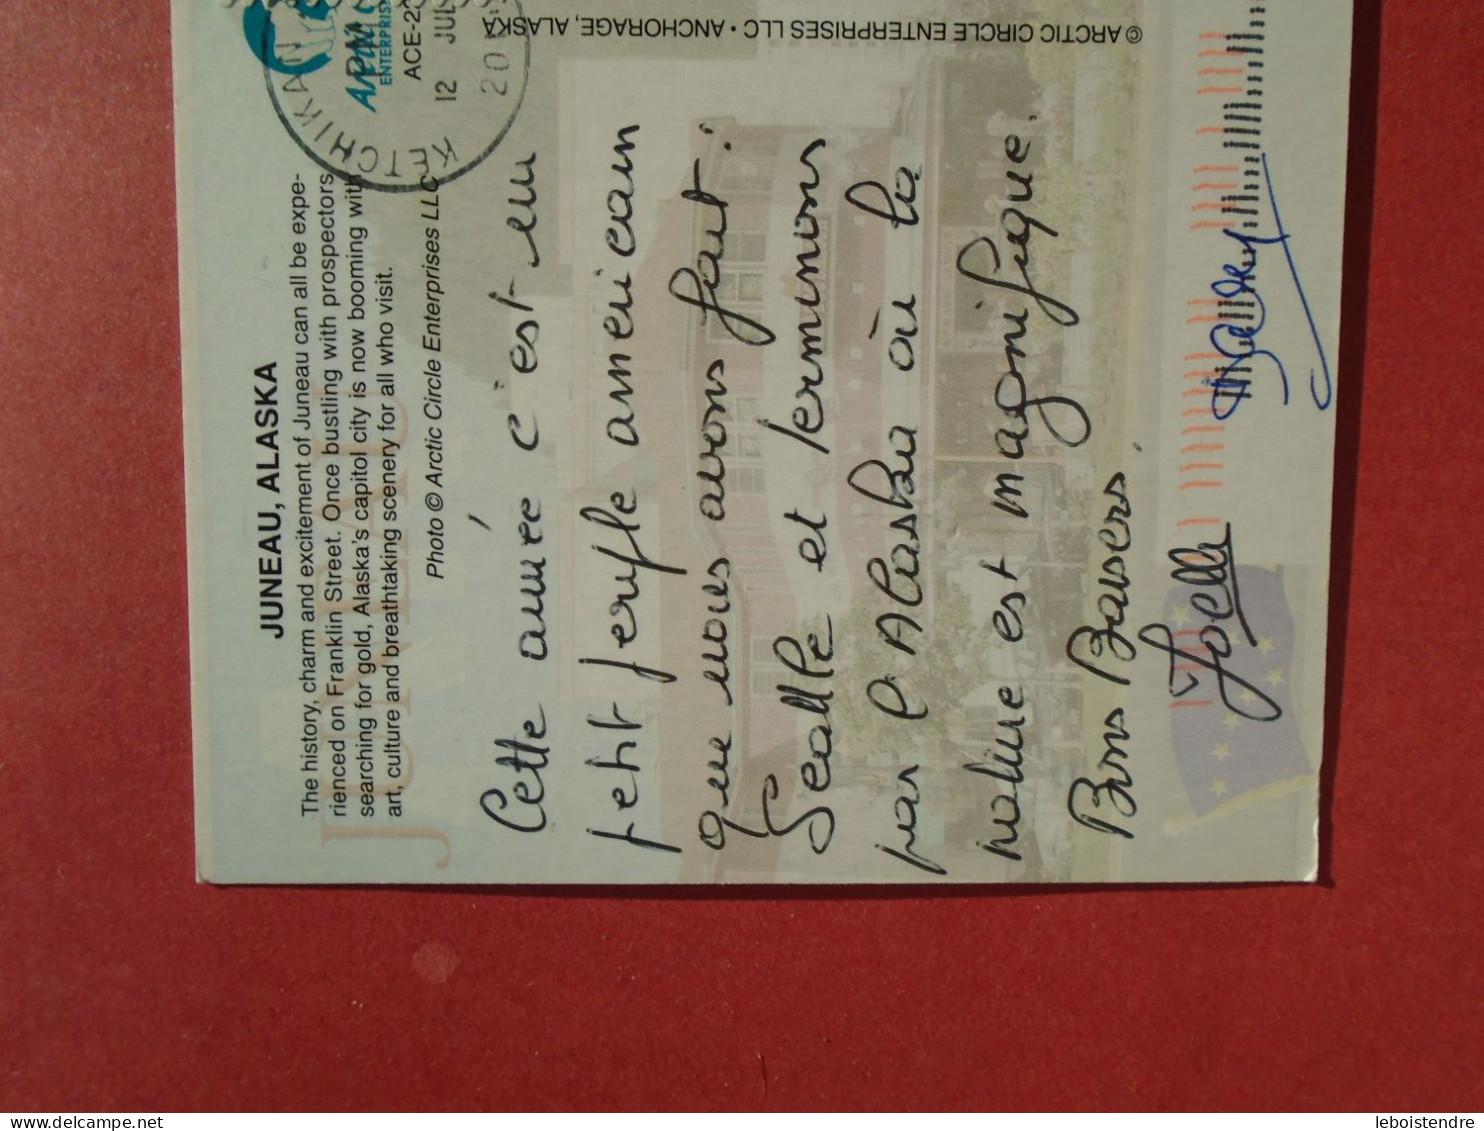 JUNEAU, ALASKA
The history, charm and excitement of Juneau can all be expe-
rienced on Franklin Street. Once bustling with prospectors
searching for gold, Alaska's capitol city is now booming with
art, culture and breathtaking scenery for all who visit.
Photo © Arctic Circle Enterprises LLC
KETCHIKAN
PM
12 JUL
ENTERPRISES
ACE-22
© ARCTIC CIRCLE ENTERPRISES LLC • ANCHORAGE, ALASKA
JUNEAU
Cette année c'est un
petit périple américain
que nous avons fait:
Seattle et terminons
par l'Alaska où la
nature est magnifique.
Bons Baisers.
Joelle
leboistendre